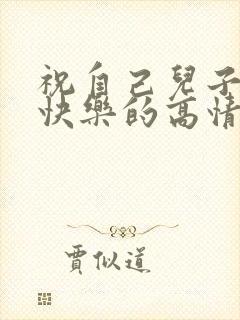 祝自己兒子
快樂的高情
賈似道